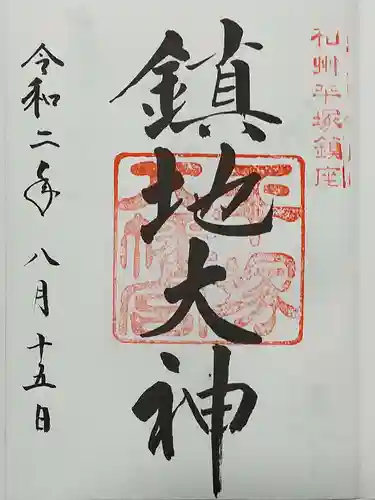 相州平塚鎮座
鎮地大神
令和二年八月十五日